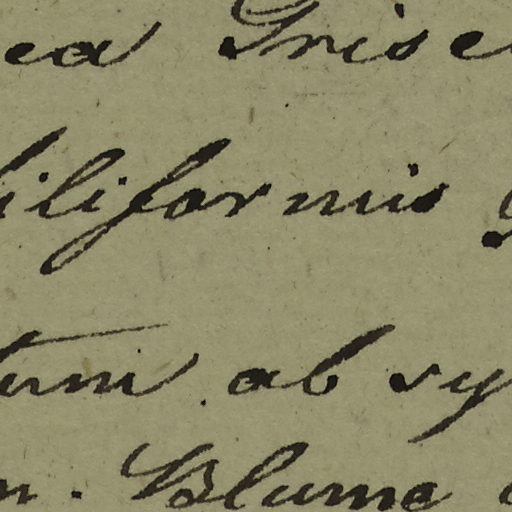 ea Grise
iliformis
tum ab sy
m. Blume